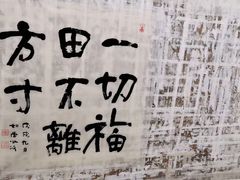 一切福
田不離
方寸